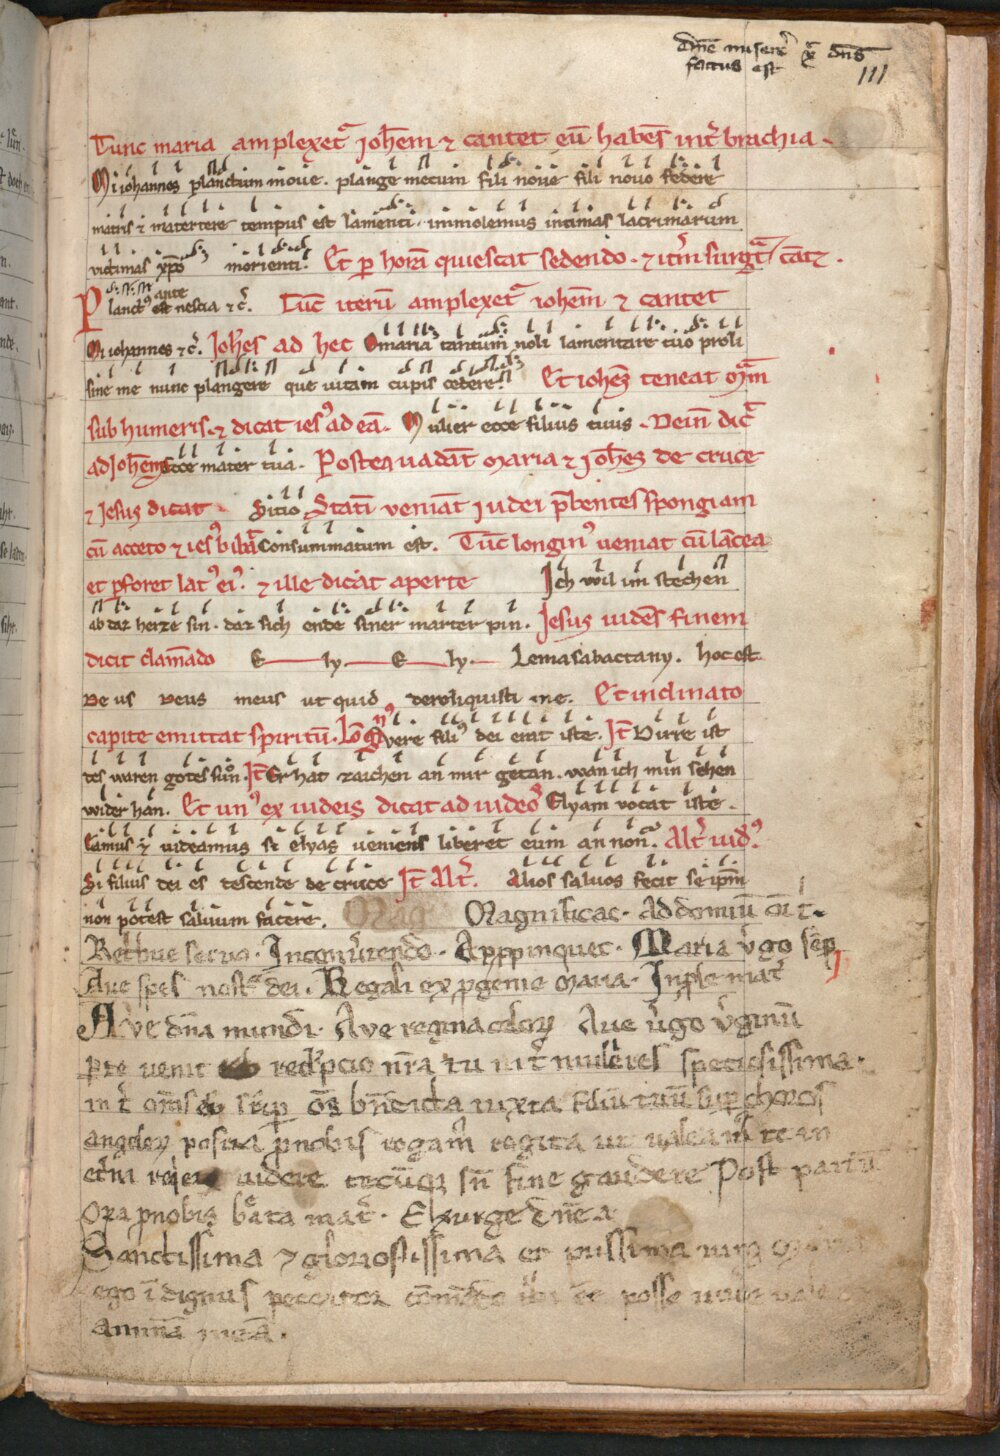 dn̄e miserē x̄ dn̄s
factus est
111
Tunc maria amplexet᷑ ioh̄em ⁊ cantet eū habēs int̄ brachia
Mi iohannes planctum moue. plange mecum fili noue fili nouo federe
matris ⁊ matertere tempus est lamenti. immolemus intimas lacrimarum
victimas xp̄o morienti. Et p horā quiescat sedendo. ⁊ it̄m surgat᷑ cāt⁊.
Planctꝰ ante nescia ⁊ c̄. Tūc iterū amplexet᷑ ioh̄em ⁊ cantet
Mi iohannes ⁊ c̄. Joh̄es ad hec O maria tantum noli lamentare tuo proli
sine me nunc plangere que uitam cupis cedere. Et ioh̄es teneat M̄am
sub humeris. ⁊ dicat iesꝰ ad eā. Mulier ecce filius tuus. Dein̄ dic᷑
ad Joh̄em Ecce mater tua. Postea uadāt Maria ⁊ joh̄es de cruce
⁊ Jesus dicat Sitio Statī veniāt Judei p̄bentes spongiam
cū acceto ⁊ iesꝰ bibat᷑ Consummatum est. Tūc longinꝰ veniat cū lācea
et pforet latꝰ eiꝰ. ⁊ ille dicat aperte Ich wil im stechen
ab daz herze sin. daz sich ende siner marter pin. Jesus uidēs finem
dicit clamādo E ly. E ly. Lemasabactany. hoc est
Deus Deus meus ut quid dereliquisti me. Et inclinato
capite emittat spiritū. Lōgīnꝰ vere filiꝰ dei erat iste. It̄ Dirre ist
des waren gotes sun. It̄ Er hat zaichen an mir getan. wan ich min sehen
wider han. Et unꝰ ex iudeis dicat ad iudeos Elyam vocat iste.
Eamus ⁊ uideamus si elyas veniens liberet eum an non. Alt̄ iudꝰ.
Si filius dei es descende de cruce It̄ Alt̄. Alios saluos fecit se ip̄m
non potest saluum facere. Mag Magnificat. Ad dominū
Retribue seruo. In conuertendo. Appropinquet. Maria v̄go semp
Aue spes nostra dei. Regali ex pgenie Maria. Inple mat̄
Ave dn̄a mundi. Ave regina celoꝝ Aue v̄go v̄ginū
p te venit redēpcio nr̄a tu int̄ mulieres speciosissima.
int̄ bn̄dicta iuxta filiū tuū sup choros
angeloꝝ posita p nobis rogam̄ rogita ut valeam̄ te in
videre tecūqꝫ sn̄ fine gaudere Post partū
Ora p nobis bēata mat̄. Exsurge dn̄e a
Sanctissima ⁊ gloriosissima et piissima
ego īdignus peccator posse
animā meā.